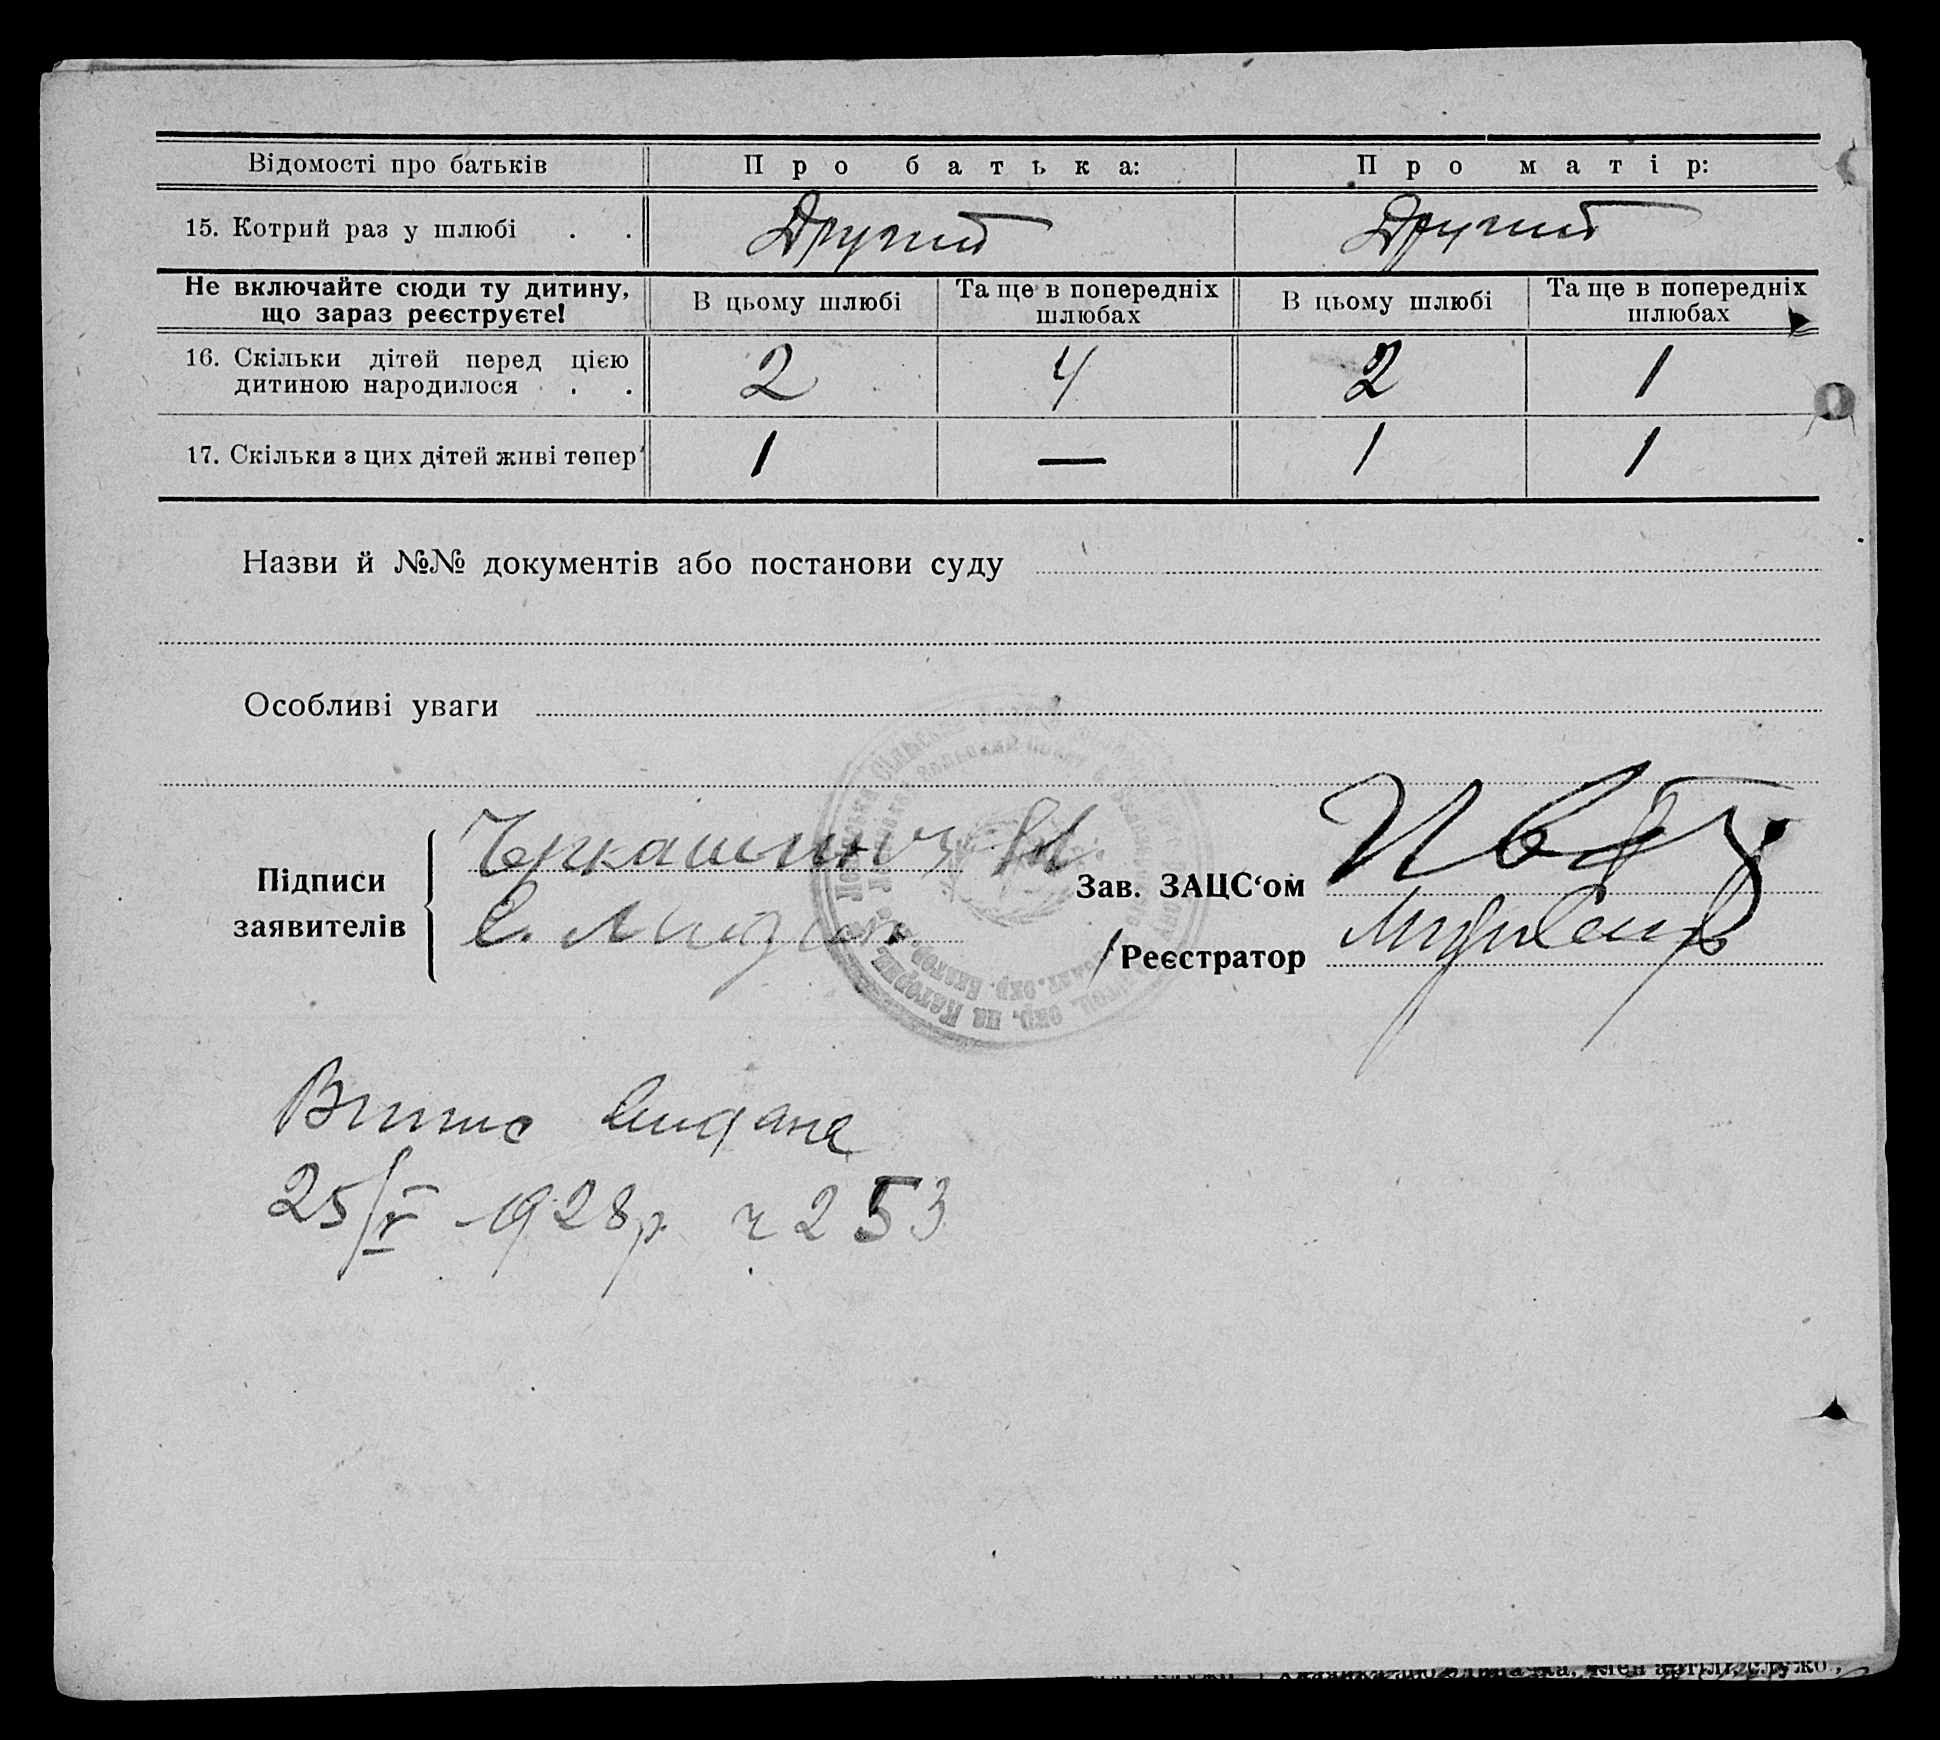 Відомості про батьків Про батька: Про матір:
15. Котрий раз у шлюбі . . Другий Другий
Не включайте сюди ту дитину, що зараз реєструєте! В цьому шлюбі Та ще в попередніх шлюбах В цьому шлюбі Та ще в попередніх шлюбах
16. Скільки дітей перед цією
дитиною народилося . . 2 4 2 1
17. Скільки з цих дітей живі тепер 1 — 1 1
Назви й №№ документів або постанови суду
Особливі уваги
Підписи
заявителів
Зав. ЗАЦС‘ом
Реєстратор
Випис видана
25/V 1928 р. ч 253
член артілі, служб